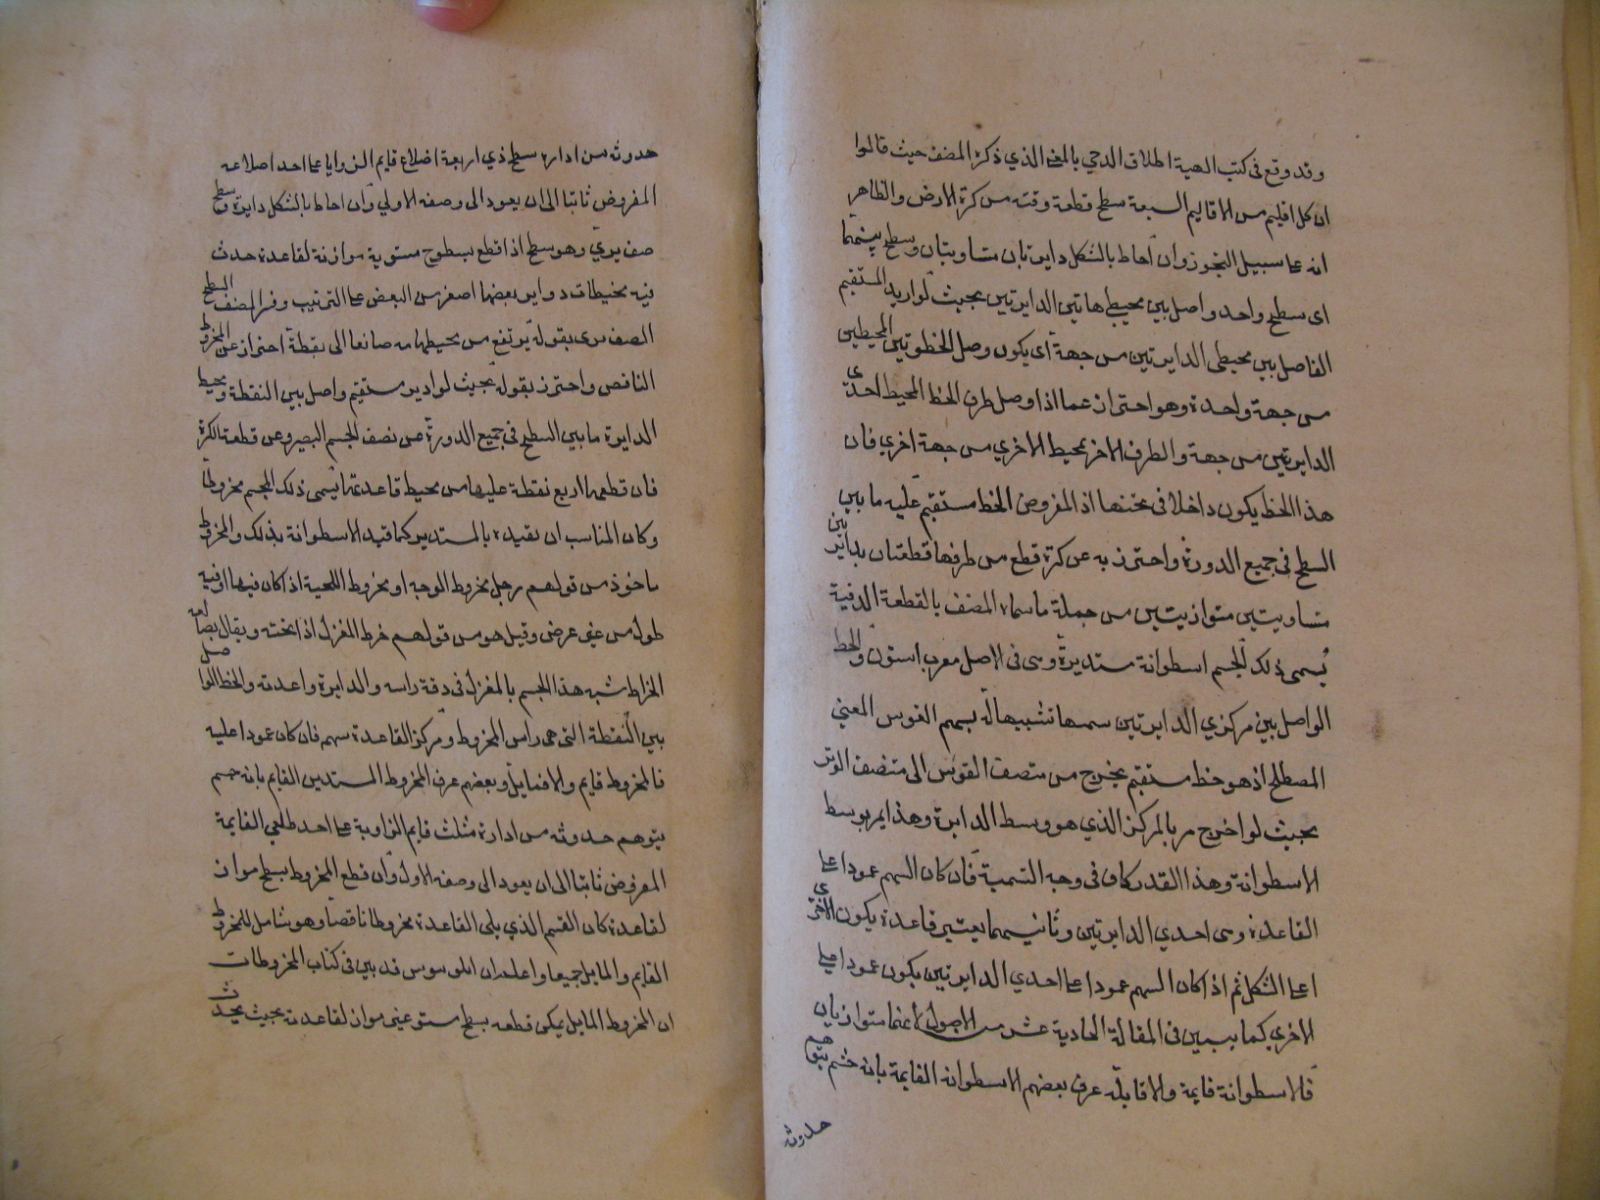 وقد وقع فى كتب الهية اطلاق الدحي بالمعنى الذي ذكره المصنف حيث قالوا
ان كل اقليم من الاقاليم السبعة سطح قطعة وقته من كرة الارض والظاهر
انه على سبيل التجوز وان احاط بالشكل دايرتان متساويتان وسطح بينهما
اى سطح واحد واصل بين محيطي هاتين الدايرتين بحيث لو ادير المستقيم
الفاصل بين محيطى الدايرتين من جهة اى يكون وصل الخط المحيطين
من جهة واحدة وهو احتراز عما اذا وصل طرف الخط المحيط احدى
الدايرتين من جهة والطرف الاخر بمحيط الاخري من جهة اخري فان
هذا الخط يكون داخلا فى اذ المفروض الخط مستقيم عليه ما بين
السطح فى جميع الدورة واحترز به عن كرة قطع من طرفها قطعتان بدايرتين
متساويتين متوازيتين من جملة ماسماه المصنف بالقطعة الدفية
يسمى ذلك الجسم اسطوانة مستديرة وهى فى الاصل معرب استون والخط
الواصل بين مركزي الدايرتين سهما تشبيها له بسهم القوس المعني
المصطلح اذ هو خط مستقيم يخرج من منتصف القوس الى منتصف الوتر
بحيث لو اخرج مر بالمركز الذي هو وسط الدايرة وهذا يمر بوسط
الاسطوانة وهذا القدر كاف فى وجه التسمية فان كان السهم عمودا على
القاعدة وهى احدي الدايرتين وثانيهما يعتبر قاعدة يكون الاخرى
اعلى الشكل ثم اذا كان السهم عمودا على احدي الدايرتين يكون عمودا على
الاخري كما يبين فى المقالة الحادية عشر من الاصول لانهما متوازيان
فالاسطوانة قايمة والا فايلة عرف بعضهم الاسطوانة القايمة بانه جسم يتوهم
حدوثه
حدوثه من ادارة سطح ذي اربعة اضلاع قايم الزوايا على احد اضلاعه
المفروض ثابتا الى ان يعود الى وضعه الاولي وان احاط بالشكل دايرة وسطح
صنوبري وهو سطح اذا قطع بسطوح مستوية موازنة لقاعدة حدث
فيه محيطات دواير بعضها اصغر من البعض على الترتيب وفسر المصنف السطح
الصنوبرى بقوله يرتفع من محيطها متصانعا الى نقطة احتراز عن المخروط
الناقص واحترز بقوله بحيث لو ادير مستقيم واصل بين النقطة ومحيط
الدايرة ما بين السطح فى جميع الدورة عن نصف الجسم البصير وعن قطعة الكرة
فان قطعها اربع نقطة عليها من محيط قاعدتها يسمى ذلك الجسم مخروطا
وكان المناسب ان يقيده بالمستدير كما قيد الاسطوانة بذلك والمخروط
ماخوذ من قولهم رجل مخروط الوجه او مخروط اللحية اذا كان فيها او فيه
طول من غير عرض وقيل هو من قولهم خرط المغزل اذا نحته ويقال بصانعه
الخراط شبه هذا الجسم بالمغزل فى دقة راسه والدايرة واعدته والخط الواصل
بين النقطة التى هى راس المخروط ومركز القاعدة سهم فان كان عمودا عليه
فالمخروط قايم والا فمايل وبعضهم عرف المخروط المستدير القايم بانه جسم
يتوهم حدوثه من ادارة مثلث قايم الزاوية على احد ضلعي القايمة
المفروض ثابتا الى ان يعود الى وضعه الاول وان قطع المخروط بسطح مواز
لقاعدة كان القسم الذي يلى القاعدة مخروطا ناقصا وهو شامل للمخروط
القايم والمايل جميعا واعلم ان ابلونيوس قد بين فى كتاب المخروطات
ان المخروط المايل يمكن قطعه بسطح مستو غير مواز لقاعدته بحيث يحدث